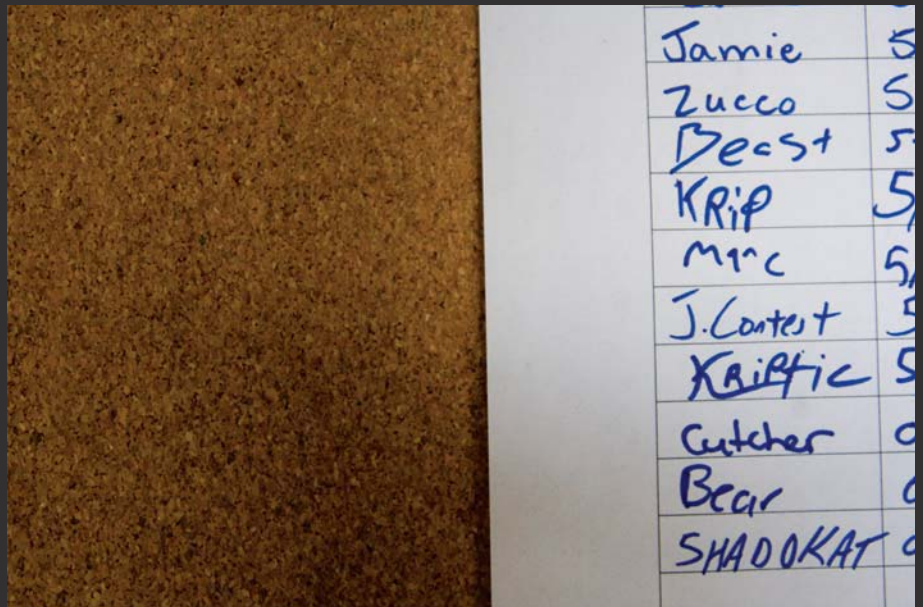 Jamie 5
Zucco 5
Beast 5
KRiP 5,
Marc 5,
J.Contest 5
KRiPtic 5
Cutcher
Bear
SHADOKAT